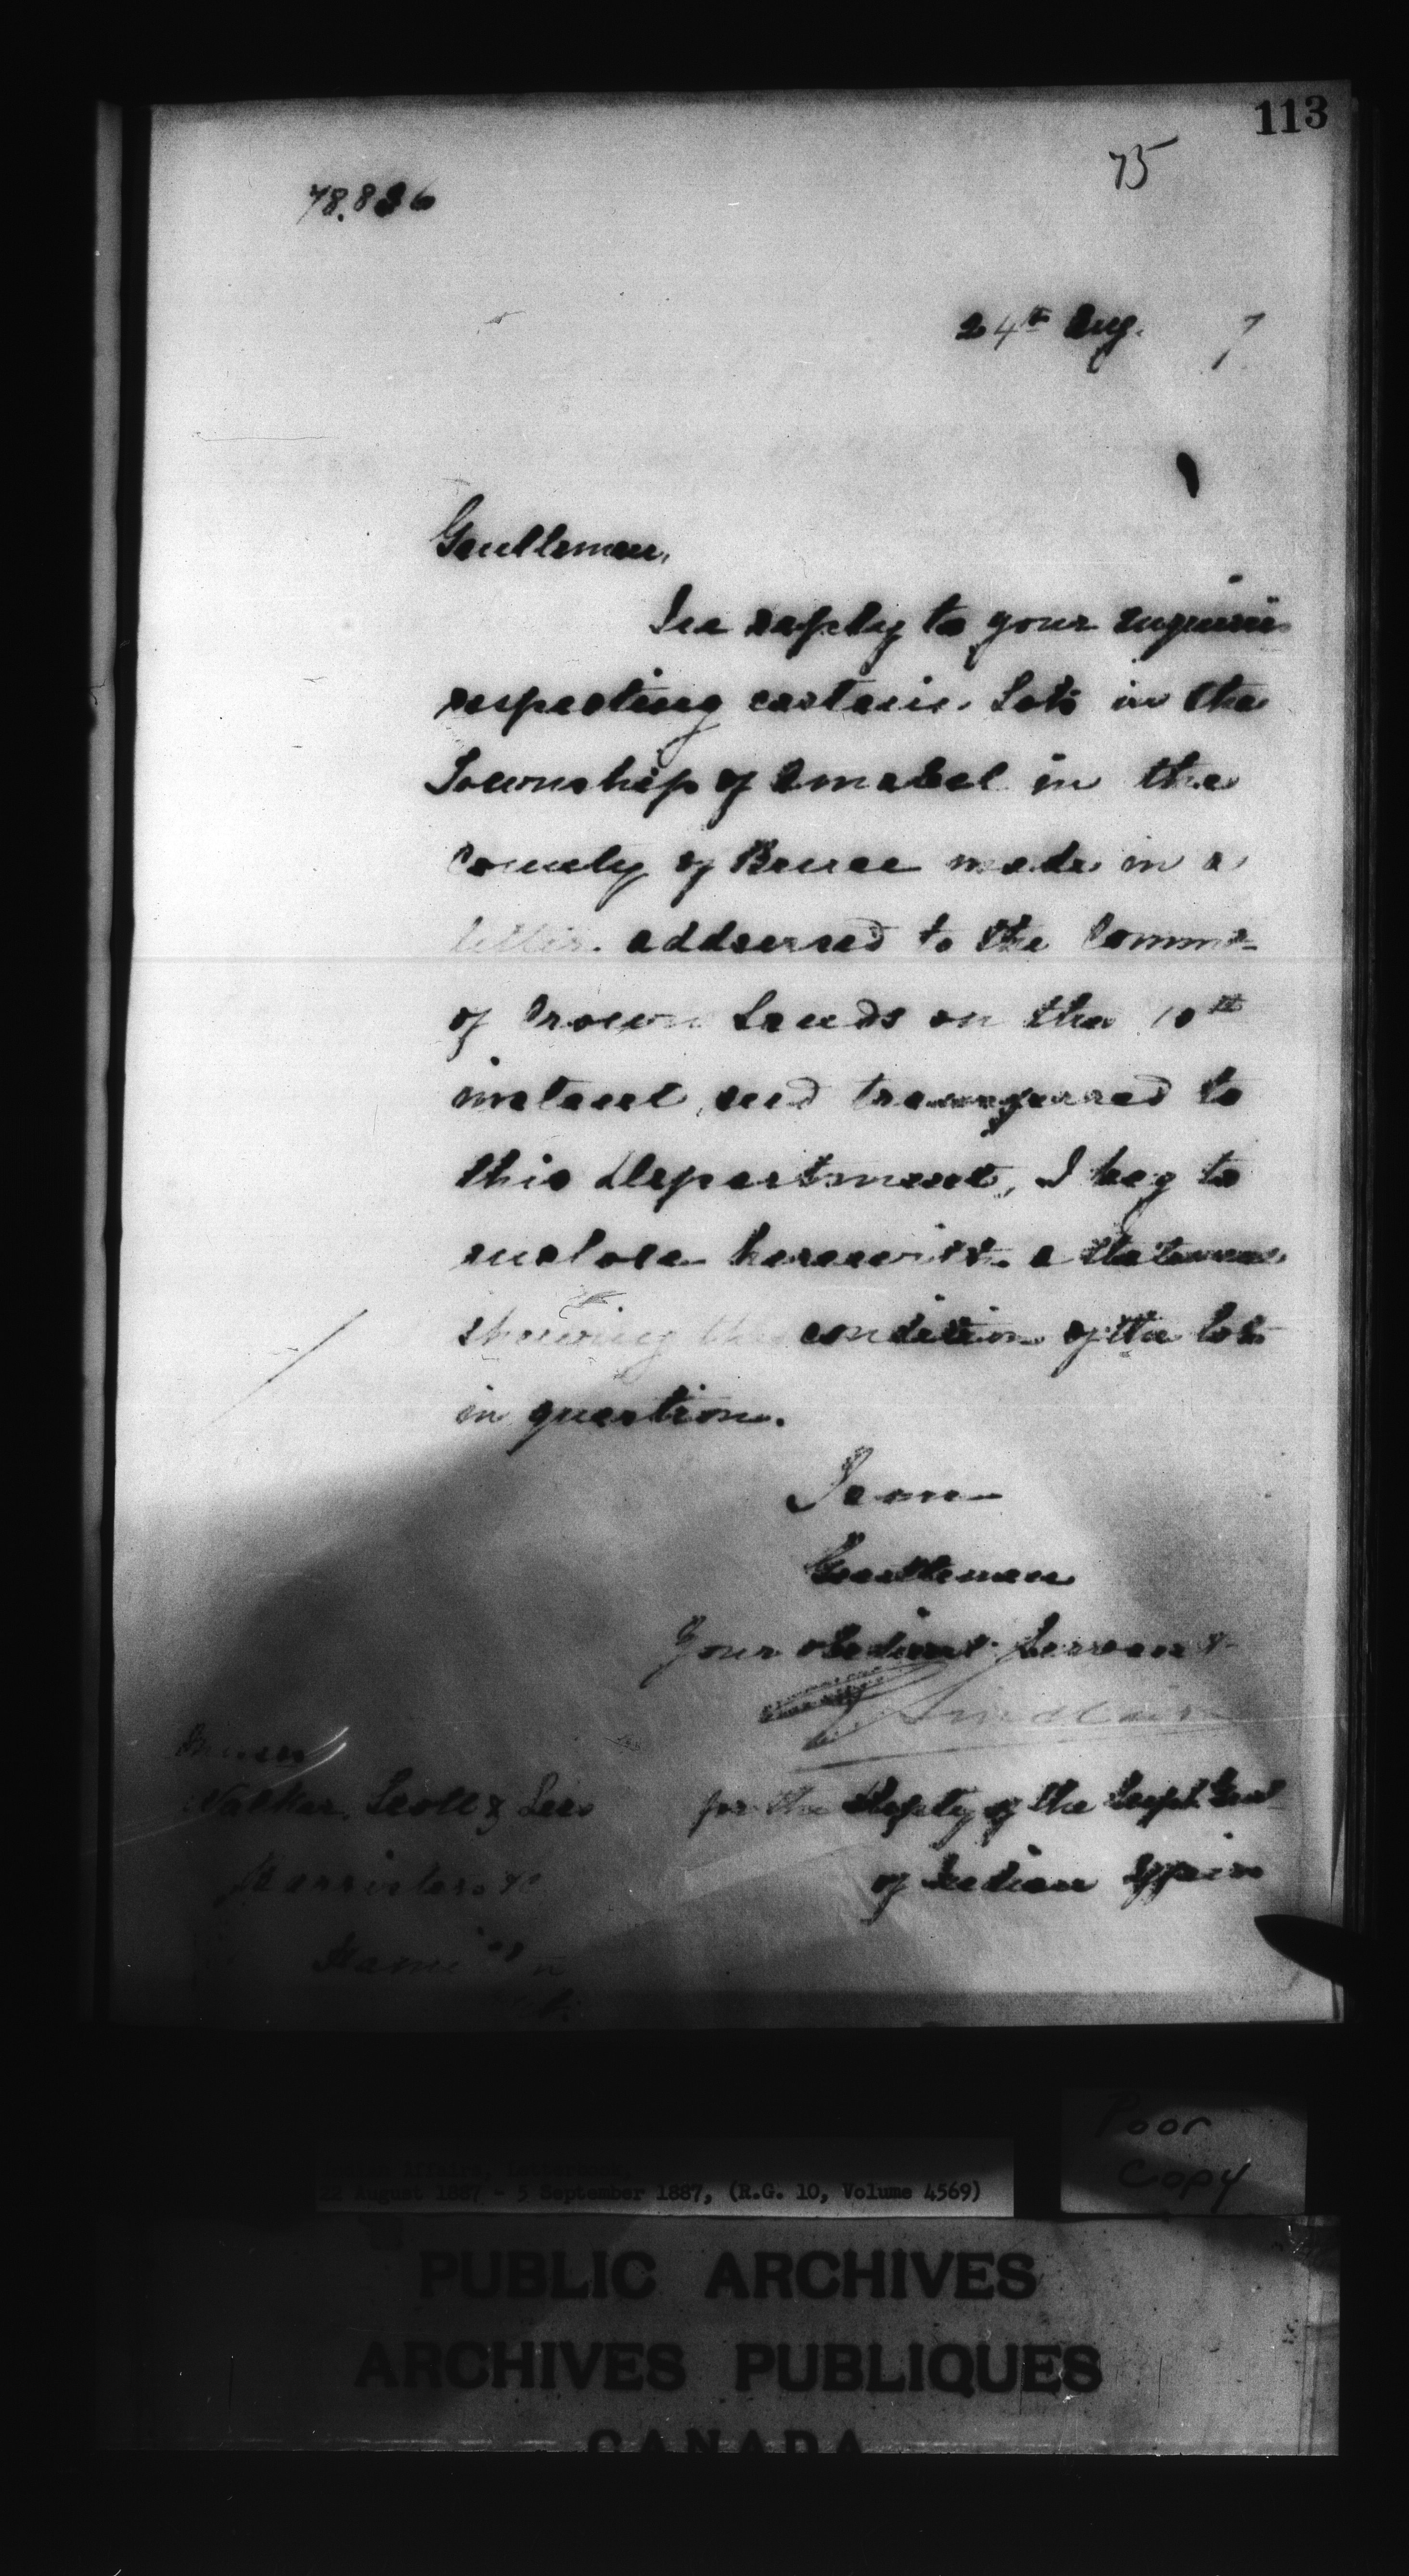 113
75
78.836
24th Aug. 7
Gentlemen,
In reply to your inquiries
respecting certain Lots in the
Township of Amabel in the
County of Bruce made in a
letter addressed to the Commr
of Crown Lands on the 10th
instant, and transferred to
this Department, I beg to
enclose herewith a statement
showing the condition of the lots
in question.
I am
Gentlemen
Your obedient Servant
Sinclair
for the Deputy of the Supt. Genl
of Indian Affairs
Walker, Scott & Lees
Barristers &c
Hamilton
Poor
Copy
22 August 1887 - 5 September 1887, (R.G. 10, Volume 4569)
PUBLIC ARCHIVES
ARCHIVES PUBLIQUES
CANADA